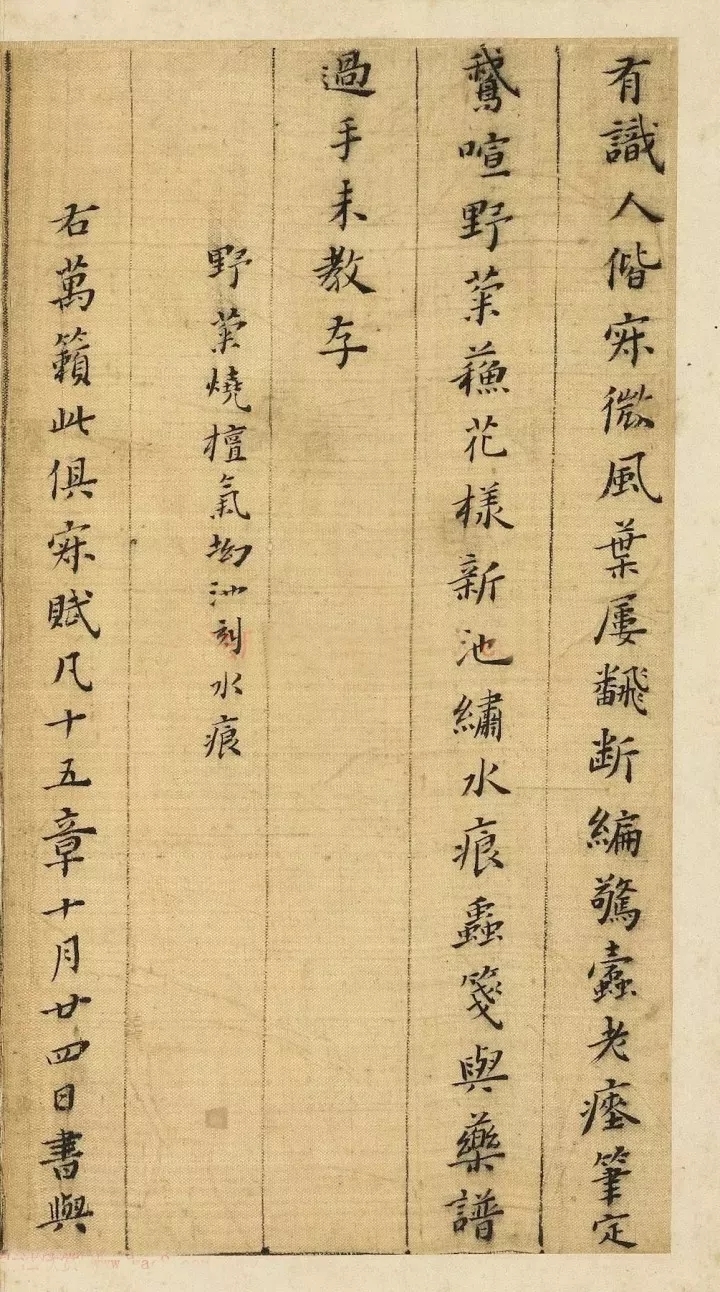 有識人偕寂微風葉屢翻斷編驚蠹老瘞筆定
鵝喧野菜蘓花樣新池繡水痕蟲箋與藥譜
過手未教存
野菜燒檀氣坳池刻水痕
右萬籟此俱寂賦凡十五章十月廿四日書與